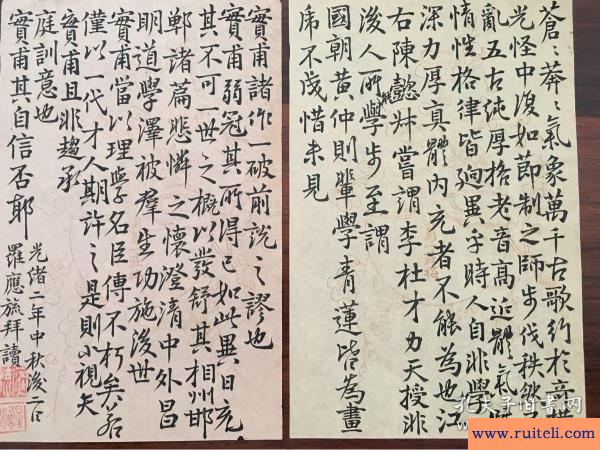 蒼〻莽〻氣象萬千古歌約於奇
光怪中復如節制之師步伐秩然
亂五古純厚格老音高近體氣
情性格律皆迥異乎時人自非學
深力厚真體內充者不能為也江
右陳懿叔嘗謂李杜才力天授非
後人所能學步至謂
國朝黃仲則輩學青蓮皆為畫
虎不成惜未見
實甫諸作一破前說之謬也
實甫弱冠其所得已如此異日充
其不可一世之概以發舒其相州邯
鄲諸篇悲憐之懷澄清中外昌
明道學澤被羣生功施後世
實甫當以理學名臣傳不朽矣若
僅以一代才人期許之是則小視矣
實甫且非趨承
庭訓意也
實甫其自信否耶
光緒二年中秋後二日
羅應旒拜讀
孔夫子旧书网
www.ruiteli.com